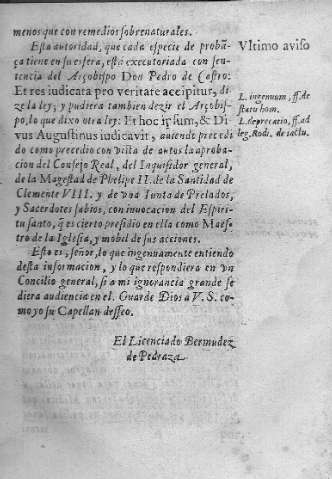 menos que con remedios sobrenaturales.
Esta autoridad, que cada especie de probã-
ça tiene en su esfera, està executoriada con sen-
tencia del Arçobispo Don Pedro de Castro:
Et res iudicata pro veritate accipitur, di-
ze la ley; y pudiera tambien dezir el Arçobis-
po, lo que dixo otra ley: Et hoc ipsum, & Di-
vus Augustinus iudicavit, auiende precedi-
do como precediò con vista de autos la aproba-
cion del Consejo Real, del Inquisidor general,
de la Magestad de Phelipe II. de la Santidad de
Clemente VIII. y de vna Iunta de Prelados,
y Sacerdotes sabios, con inuocacion del Espiri-
tu santo, q̃ es cierto presidiò en ella como Maes-
tro de la Iglesia, y mobil de sus acciones.
Esto es, señor, lo que ingenuamente entiendo
desta informacion, y lo que respondiera en vn
Concilio general, si a mi ignorancia grande se
diera audiencia en el. Guarde Dios a V. S. co-
mo yo su Capellan desseo.
El Licenciado Bermudez
de Pedraza.
Vltimo aviso
L. ingenuum, ff. de
statu hom.
L. deprecatio, ff. ad
leg. Rodi. de iactu.